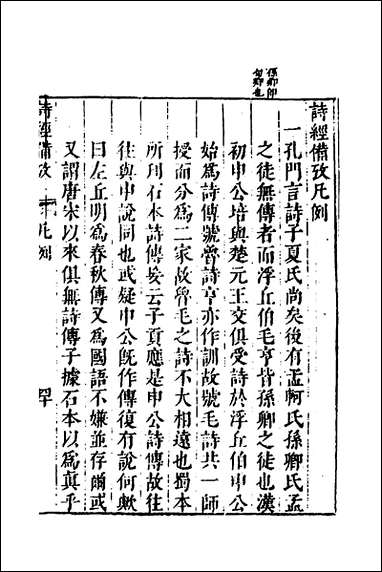 詩經備攷凡例
一孔門言詩子夏氏尚矣後有孟軻氏孫卿氏孟
之徒無傳者而浮丘伯毛亨皆孫卿之徒也漢
初申公培與楚元王交俱受詩於浮丘伯申公
始爲詩傳號魯詩亨亦作訓故號毛詩共一師
授而分爲二家故魯毛之詩不大相遠也蜀本
所刋石本詩傳妄云子貢應是申公詩傳故往
往與申說同也或疑申公旣作傳復有說何歟
曰左丘明爲春秋傳又爲國語不嫌並存爾或
又謂唐宋以來俱無詩傳子據石本以爲真乎
孫卿卽
荀卿也
詩經備攷
凡例